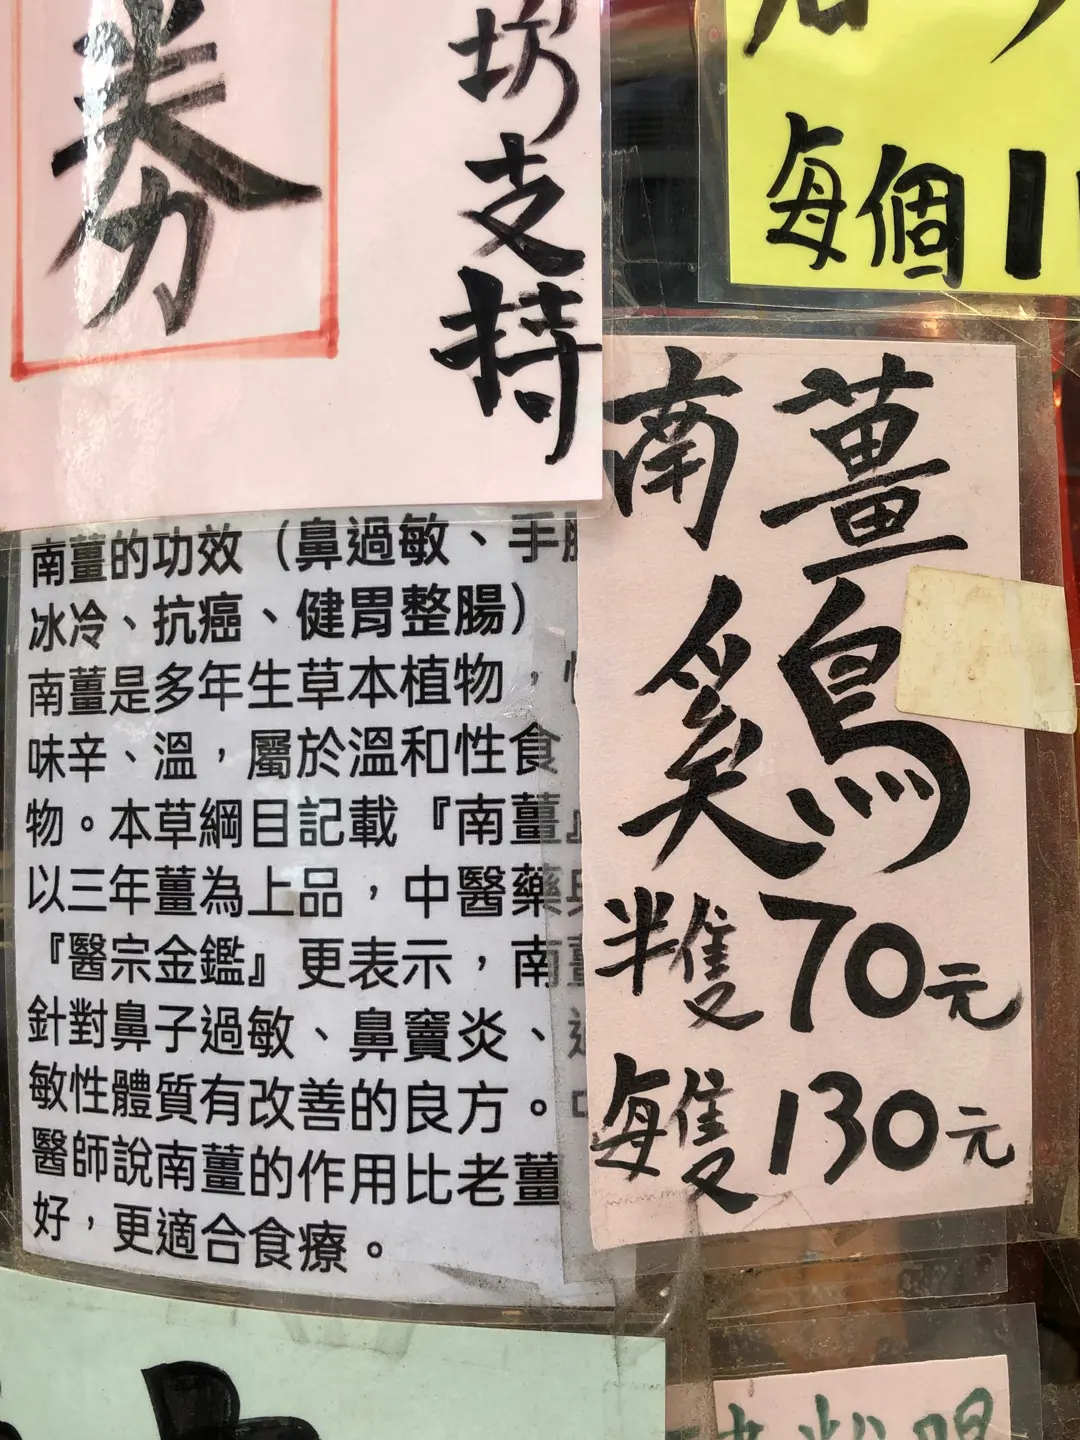 券
坊支持
每個1
南薑
雞
半隻70元
每隻130元
南薑的功效（鼻過敏、手
冰冷、抗癌、健胃整腸）
南薑是多年生草本植物，
味辛、溫，屬於溫和性食
物。本草綱目記載『南薑』
以三年薑為上品，中醫藥
『醫宗金鑑』更表示，南薑
針對鼻子過敏、鼻竇炎、過
敏性體質有改善的良方。中
醫師說南薑的作用比老薑
好，更適合食療。